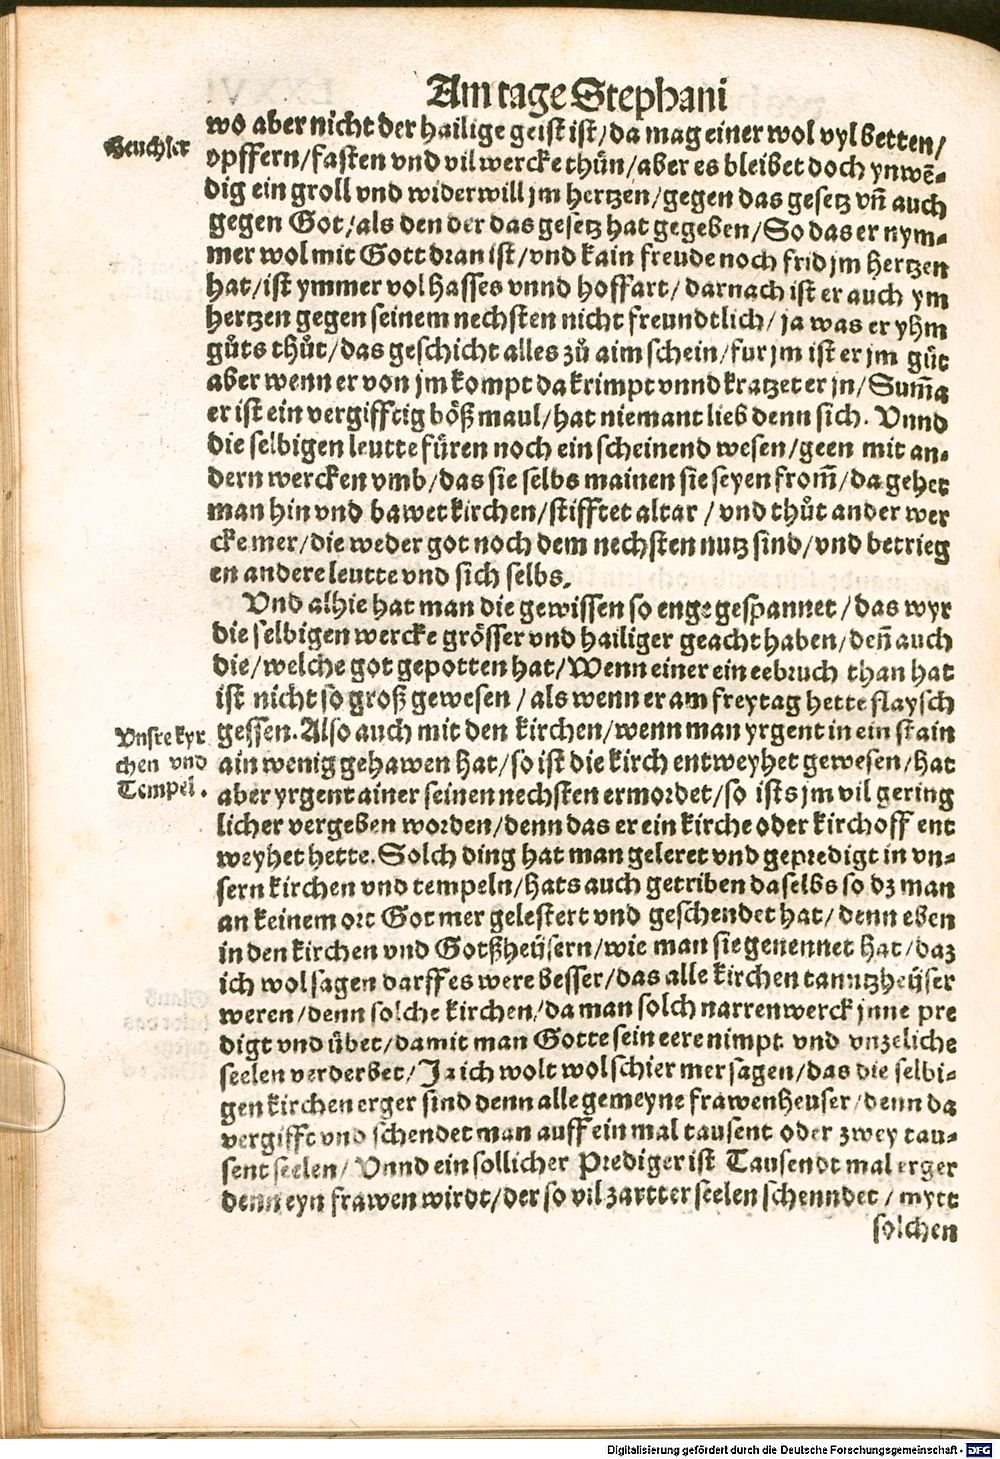 Am tage Stephani
Heuchler
wo aber nicht der hailige geist ist/da mag einer wol vyl betten/
opffern/fasten vnd vil wercke thůn/aber es bleibet doch ynwē-
dig ein groll vnd widerwill jm hertzen/gegen das gesetz vn̄ auch
gegen Got/als den der das gesetz hat gegeben/So das er nym-
mer wol mit Gott dran ist/vnd kain freude noch frid jm hertzen
hat/ist ymmer vol hasses vnnd hoffart/darnach ist er auch ym
hertzen gegen seinem nechsten nicht freundtlich/ja was er yhm
gůts thůt/das geschicht alles zů aim schein/fur jm ist er jm gůt
aber wenn er von jm kompt da krimpt vnnd kratzet er jn/Sum̄a
er ist ein vergifftig böß maul/hat niemant lieb denn sich. Vnnd
die selbigen leutte füren noch ein scheinend wesen/geen mit an-
dern wercken vmb/das sie selbs mainen sie seyen from̄/da gehet
man hin vnd bawet kirchen/stifftet altar/vnd thůt ander wer
cke mer/die weder got noch dem nechsten nutz sind/vnd betrieg
en andere leutte vnd sich selbs.
Vnd alhie hat man die gewissen so enge gespannet/das wyr
die selbigen wercke grösser vnd hailiger geacht haben/den̄ auch
die/welche got gepotten hat/Wenn einer ein eebruch than hat
ist nicht so groß gewesen/als wenn er am freytag hette flaysch
gessen. Also auch mit den kirchen/wenn man yrgent in ein stain
Vnsre kyr
chen vnd
Tempel.
ain wenig gehawen hat/so ist die kirch entweyhet gewesen/hat
aber yrgent ainer seinen nechsten ermordet/so ists jm vil gering
licher vergeben worden/denn das er ein kirche oder kirchoff ent
weyhet hette. Solch ding hat man geleret vnd gepredigt in vn-
sern kirchen vnd tempeln/hats auch getriben daselbs so dz man
an keinem ort Got mer gelestert vnd geschendet hat/denn eben
in den kirchen vnd Gotßheÿsern/wie man sie genennet hat/daz
ich wol sagen darff es were besser/das alle kirchen tanntzheÿser
weren/denn solche kirchen/da man solch narrenwerck jnne pre
digt vnd übet/damit man Gotte sein eere nimpt vnd vnzeliche
seelen verderbet/Ja ich wolt wol schier mer sagen/das die selbi-
gen kirchen erger sind denn alle gemeyne frawenheuser/denn da
vergifft vnd schendet man auff ein mal tausent oder zwey tau-
sent seelen/Vnnd ein sollicher Prediger ist Tausendt mal erger
denn eyn frawen wirdt/der so vil zartter seelen schenndet/mytt
solchen
Digitalisierung gefördert durch die Deutsche Forschungsgemeinschaft - DFG